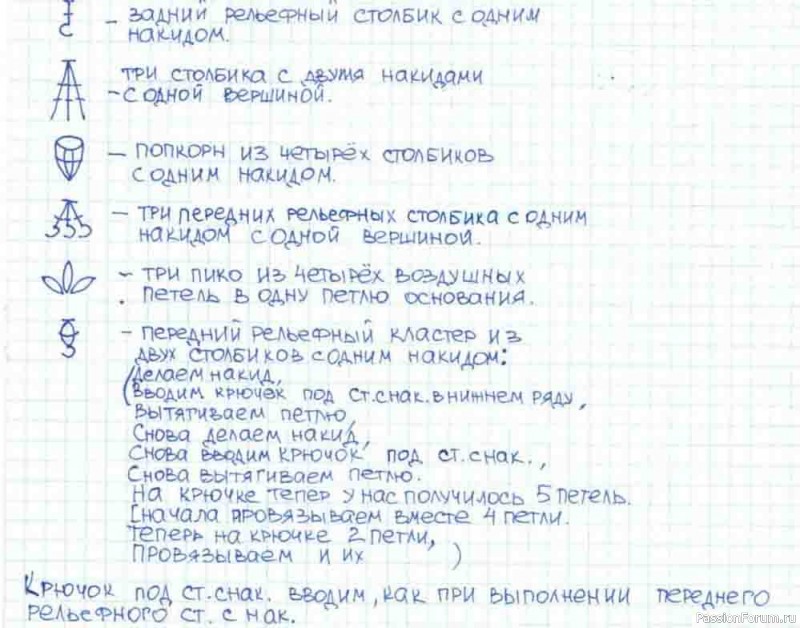 – задний рельефный столбик с одним
накидом.
три столбика с двумя накидами
– с одной вершиной.
– попкорн из четырёх столбиков
с одним накидом.
– три передних рельефных столбика с одним
накидом с одной вершиной.
– три пико из четырёх воздушных
петель в одну петлю основания.
– передний рельефный кластер из
двух столбиков с одним накидом:
(Делаем накид,
вводим крючек под ст.снак. в нижнем ряду,
вытягиваем петлю,
Снова делаем накид,
Снова вводим крючок под ст.снак.,
Снова вытягиваем петлю.
На крючке тепер у нас получилось 5 петель.
Сначала провязываем вместе 4 петли.
Теперь на крючке 2 петли,
провязываем и их )
Крючок под ст.снак. вводим, как при выполнении переднего
рельефного ст. с нак.
PassionForum.ru